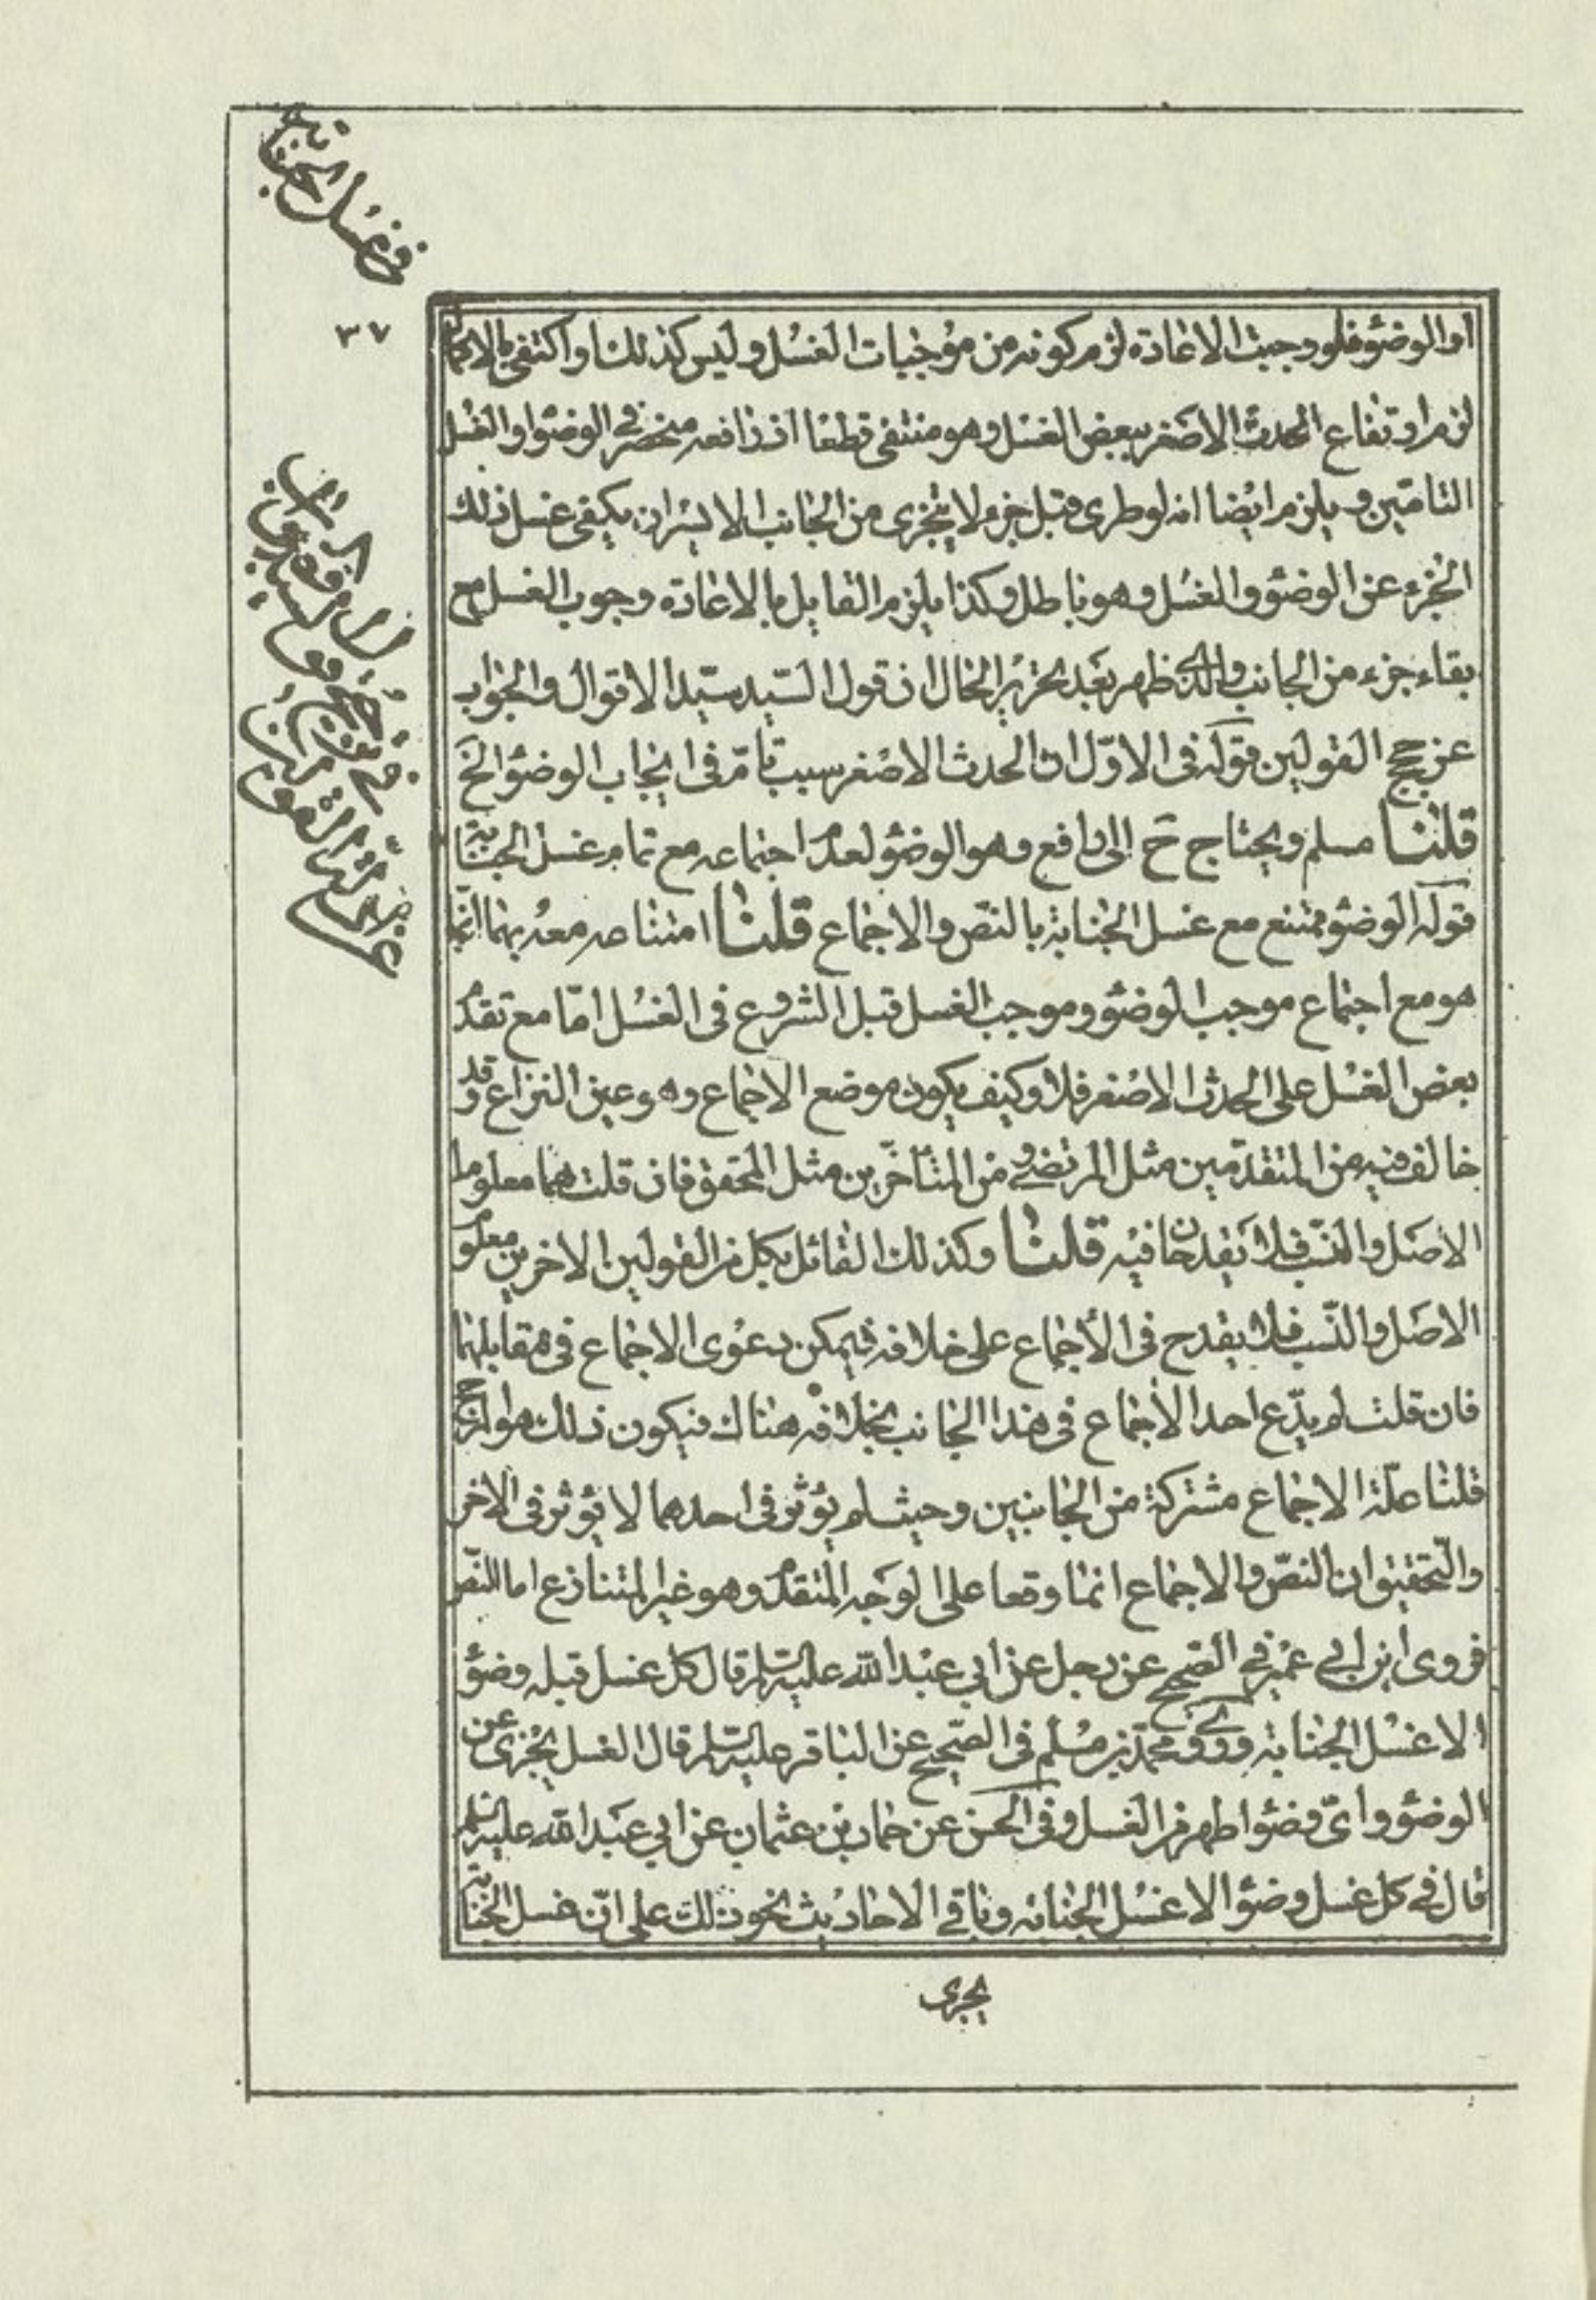 في غسل الجنابة
٣٧
او الوضوء فلو وجبت الاعادة لزم كونه من موجبات الغسل وليس كذلك او اكتفى بالاكمال
لزم ارتفاع الحدث الاصغر ببعض الغسل وهو منتفى قطعا اذ رافعه منحصر في الوضوء او الغسل
التامّين ويلزم ايضا انه لو طرى قبل جزء لا يتجزى من الجانب الايسر ان يكفى غسل ذلك
الجزء عن الوضوء والغسل وهو باطل وكذا يلزم القايل بالاعادة وجوب الغسل مع
بقاء جزء من الجانب والذى ظهر بعد تحرير الحال ان قول السّيد سيّد الاقوال والجواب
عن حجج القولين قوله فى الاوّل ان الحدث الاصغر سبب تامّ فى ايجاب الوضوء الخ
قلنا مسلم ويحتاج ح الى رافع وهو الوضوء لعدم اجتماعه مع تمام غسل الجنابة
قوله الوضوء ممتنع مع غسل الجنابة بالنصّ والاجماع قلنا امتناعه معه بهما انّما
هو مع اجتماع موجب الوضوء وموجب الغسل قبل الشروع فى الغسل امّا مع تقدم
بعض الغسل على الحدث الاصغر فلا وكيف يكون موضع الاجماع وهو عين النزاع وقد
خالف فيه من المتقدّمين مثل المرتضى ومن المتأخّرين مثل المحقق فان قلت هما معلوما
الاصل والنّسب فلا يقدحان فيه قلنا وكذلك القائل بكل من القولين الاخرين معلوم
الاصل والنّسب فلا يقدح فى الأجماع على خلافه فيمكن دعوى الاجماع فى مقابلهما
فان قلت لم يدّع احد الأجماع فى هذا الجانب بخلافه هناك فيكون ذلك هو المرجح
قلنا علّة الاجماع مشتركة من الجانبين وحيث لم يؤثر فى احدهما لا يؤثر فى الاخر
والتّحقيق ان النصّ والاجماع انما وقعا على الوجه المتقدم وهو غير المتنازع اما النصّ
فروى ابن ابي عمير في الصّحيح عن رجل عن ابي عبد الله عليه السّلم قال كل غسل قبله وضوء
الا غسل الجنابة وروى محمّد بن مسلم فى الصّحيح عن الباقر عليه السّلم قال الغسل يجزى عن
الوضوء واىّ وضوء اطهر من الغسل وفى الحسن عن حماد بن عثمان عن ابي عبد الله عليه السلم
قال في كل غسل وضوء الا غسل الجنابة وباقي الاحاديث نحو ذلك على انّ غسل الجنابة
يجزى